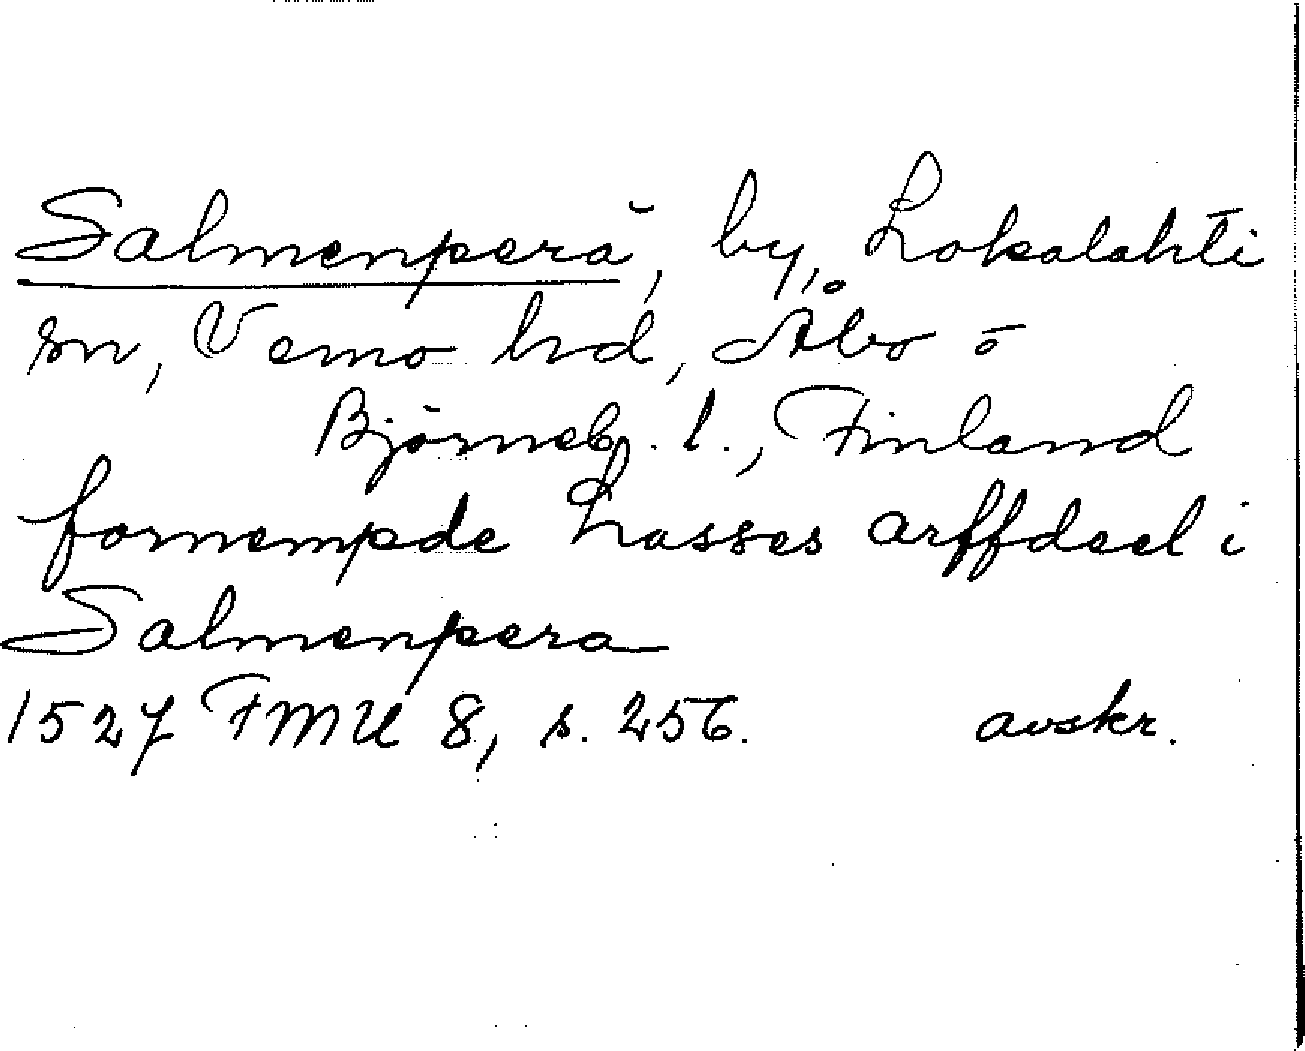 Salmenperä, by, Lokalahti
sn, Vemo hrd, Åbo o
Björneb. l., Finland
fornempde Lasses arffdeel i
Salmenpera
1527 FMU 8, s. 256. avskr.